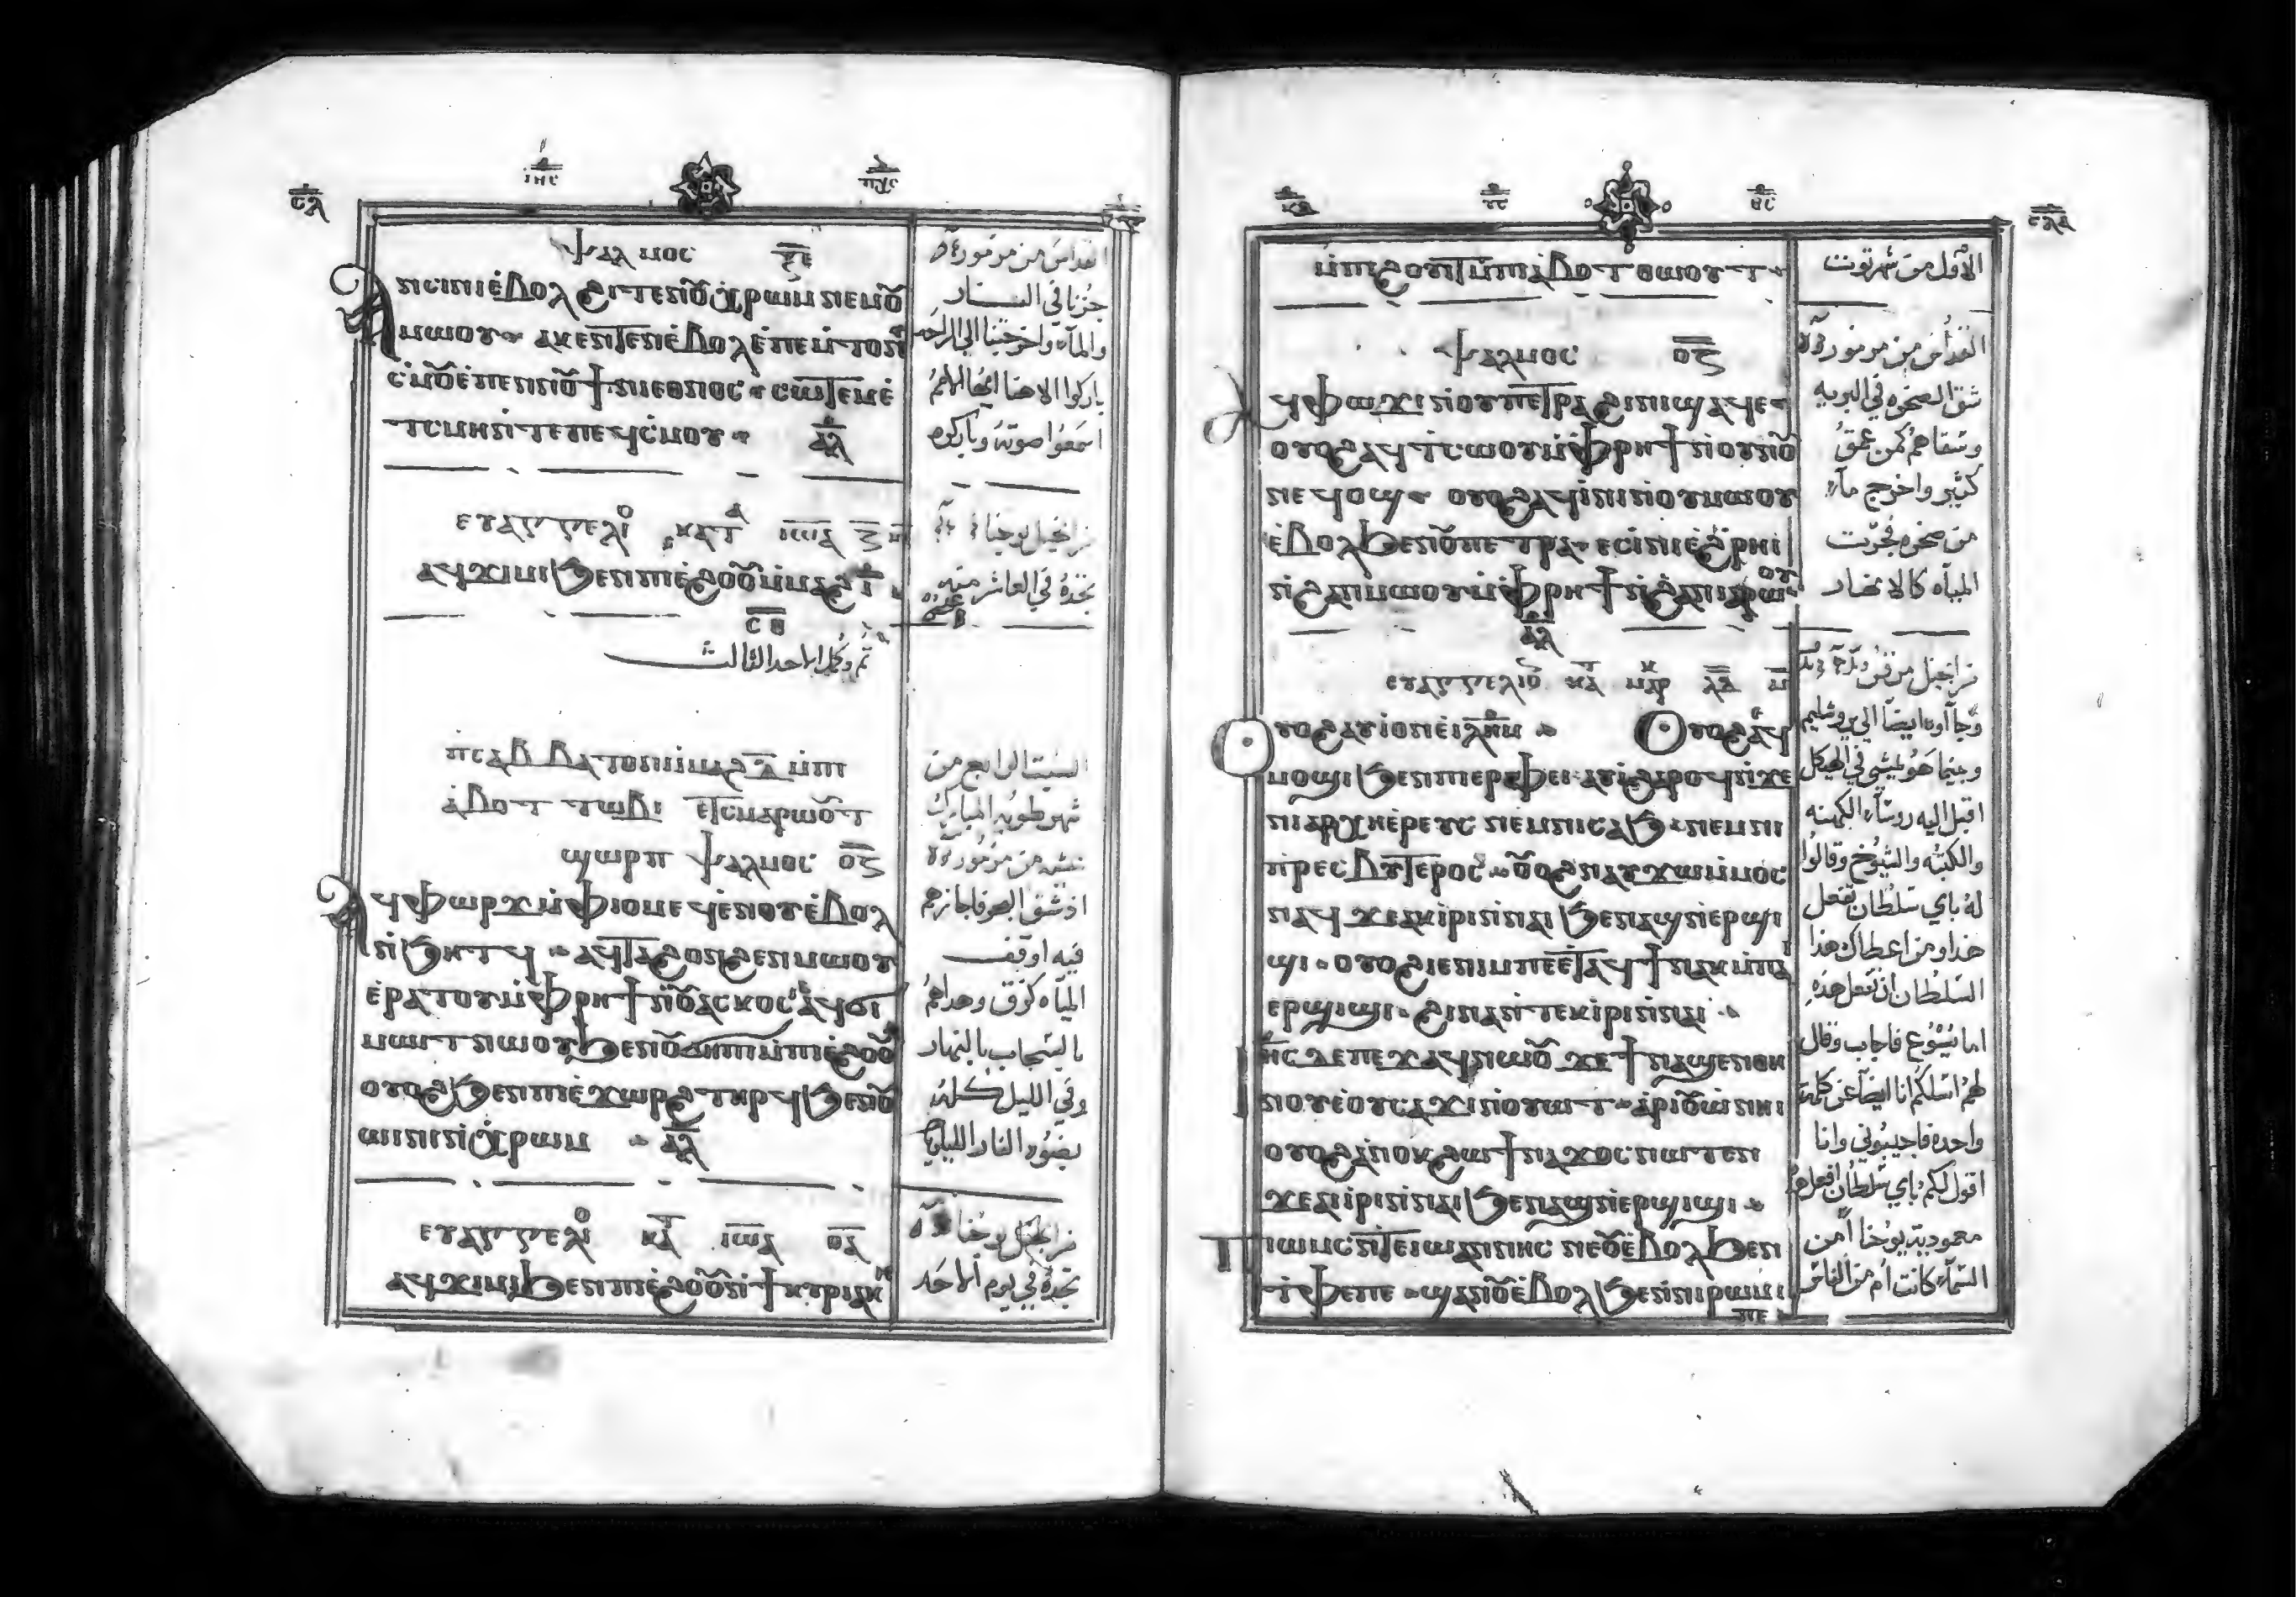 ⲥⲗ
ⲓⲏⲥ ⲡⲭⲥ
ⲯⲁⲗⲙⲟⲥ ⲝⲉ
ⲁⲛⲥⲓⲛⲓ ⲉⲃⲟⲗ ϩⲓⲧⲉⲛ ⲟⲩⲭⲣⲱⲙ ⲛⲉⲙ ⲟⲩ
ⲙⲱⲟⲩ ⲁⲕⲉⲛⲧⲉⲛ ⲉⲃⲟⲗ ⲉⲡⲉⲙⲧⲟⲛ
ⲥⲙⲟⲩ ⲉⲡⲉⲛⲛⲟⲩϯ ⲛⲓⲉⲑⲛⲟⲥ ⲥⲱⲧⲉⲙ ⲉ
ⲧⲥⲙⲏ ⲛⲧⲉ ⲡⲉϥⲥⲙⲟⲩ ⲁⲗ
القداس من مزمور
جزنا في النار
والماء واخرجتنا الى الراحه
باركوا الاهنا ايها الامم
اسمعوا صوته وباركوه
ⲉⲩⲁⲅⲅⲉⲗⲓⲟ ⲕⲁⲧⲁ ⲓⲱⲁ
ⲁϥϫⲓⲙⲓ ϧⲉⲛ ⲡⲓⲉϩⲟⲟⲩ ⲙⲙⲁϩ ⲓ
من انجيل يوحنا
تجده في العاشر منه
ⲥⲑ
تم وكمل الاحد الثالث
ⲡⲥⲁⲃⲃⲁⲧⲟⲛ ⲙⲙⲁϩ ⲇ ⲙⲡⲓ
ⲁⲃⲟⲧ ⲧⲱⲃⲓ ⲉⲧⲥⲙⲁⲣⲱⲟⲩⲧ
ϣⲱⲣⲡ ⲯⲁⲗⲙⲟⲥ ⲟⲍ
ⲁϥⲫⲱⲣϫ ⲙⲫⲓⲟⲙ ⲉϥⲉⲛⲟⲩ ⲉⲃⲟⲗ
ⲛϧⲏⲧϥ ⲁϥⲧⲁϩⲟ ⲛϩⲉⲛⲙⲱⲟⲩ
ⲉⲣⲁⲧⲟⲩ ⲙⲫⲣⲏϯ ⲛⲟⲩⲁⲥⲕⲟⲥ ⲁϥϭⲓ
ⲙⲱⲓⲧ ⲛⲱⲟⲩ ϧⲉⲛ ⲟⲩϭⲏⲡⲓ ⲙⲡⲓⲉϩⲟⲟⲩ
ⲟⲩⲟϩ ϧⲉⲛ ⲡⲓⲉϫⲱⲣϩ ⲧⲏⲣϥ ϧⲉⲛ ⲟⲩ
ⲱⲓⲛⲓ ⲛⲭⲣⲱⲙ ⲁⲗ
السبت الرابع من
شهر طوبه المبارك
عشيه من مزمور
اذ شق البحر فاجازهم
فيه اوقف
المياه كزق وهداهم
بالسحاب بالنهار
وفي الليل كله
بضوء النار الليلويا
ⲉⲩⲁⲅⲅⲉⲗⲓⲟ ⲕⲁⲧ ⲓⲱⲁ ⲟⲁ
ⲁϥϫⲓⲙⲓ ϧⲉⲛ ⲡⲓⲉϩⲟⲟⲩ ⲛϯⲕⲩⲣⲓⲁⲕⲏ
من انجيل يوحنا
تجده في يوم الاحد
ⲩⲥ ⲑⲥ
ⲥⲗⲁ
ⲙⲡⲓϩⲟⲩⲓⲧ ⲙⲡⲓⲁⲃⲟⲧ ⲑⲱⲟⲩⲧ
الاول من شهر توت
ⲯⲁⲗⲙⲟⲥ ⲟⲍ
ⲁϥⲫⲱϫⲓ ⲛⲟⲩⲡⲉⲧⲣⲁ ϩⲓ ⲡⲓϣⲁϥⲉ
ⲟⲩⲟϩ ⲁϥⲧⲥⲱⲟⲩ ⲙⲫⲣⲏϯ ⲛⲟⲩⲛⲟⲩ
ⲛⲉϥⲟϣ ⲟⲩⲟϩ ⲁϥⲓⲛⲓ ⲛⲟⲩⲙⲱⲟⲩ
ⲉⲃⲟⲗ ϧⲉⲛ ⲟⲩⲡⲉⲧⲣⲁ ⲉϥⲓⲛⲓ ⲉϩⲣⲏⲓ
ⲛϩⲁⲛⲙⲱⲟⲩ ⲙⲫⲣⲏϯ ⲛϩⲁⲛⲓⲁⲣⲱⲟⲩ
ⲁⲗ
القداس من مزمور
شق الصخره في البريه
وسقاهم كمن عمق
كثير واخرج ماء
من صخره فجرت
المياه كالانهار
ⲉⲩⲁⲅⲅⲉⲗⲓⲟ ⲕⲁⲧ ⲙⲁⲣⲕ ⲗⲁ
ⲟⲩⲟϩ ⲁⲩⲓ ⲟⲛ ⲉⲓⲗⲏⲙ ⲟⲩⲟϩ ⲁϥ
ⲙⲟϣⲓ ϧⲉⲛ ⲡⲓⲉⲣⲫⲉⲓ ⲁⲩⲓ ϩⲁⲣⲟϥ ⲛϫⲉ
ⲛⲓⲁⲣⲭⲏⲉⲣⲉⲩⲥ ⲛⲉⲙ ⲛⲓⲥⲁϧ ⲛⲉⲙ ⲛⲓ
ⲡⲣⲉⲥⲃⲩⲧⲉⲣⲟⲥ ⲟⲩⲟϩ ⲛⲁⲩϫⲱ ⲙⲙⲟⲥ
ⲛⲁϥ ϫⲉ ⲁⲕⲓⲣⲓ ⲛⲛⲁⲓ ϧⲉⲛ ⲁϣ ⲛⲉⲣϣⲓ
ϣⲓ ⲟⲩⲟϩ ⲓⲉ ⲛⲓⲙ ⲡⲉⲧⲁϥϯ ⲛⲁⲕ ⲙⲡⲁⲓ
ⲉⲣϣⲓϣⲓ ϩⲓⲛⲁ ⲛⲧⲉⲕⲓⲣⲓ ⲛⲛⲁⲓ
ⲓⲏⲥ ⲇⲉ ⲡⲉϫⲁϥ ⲛⲱⲟⲩ ϫⲉ ϯⲛⲁϣⲉⲛ ⲑⲏ
ⲛⲟⲩ ⲉⲟⲩⲥⲁϫⲓ ⲛⲟⲩⲱⲧ ⲁⲣⲓⲟⲩⲱ ⲛⲏⲓ
ⲟⲩⲟϩ ⲁⲛⲟⲕ ϩⲱ ϯⲛⲁϫⲟⲥ ⲛⲱⲧⲉⲛ
ϫⲉ ⲁⲓⲓⲣⲓ ⲛⲛⲁⲓ ϧⲉⲛ ⲁϣ ⲛⲉⲣϣⲓϣⲓ
ⲡⲓⲱⲙⲥ ⲛⲧⲉ ⲓⲱⲁⲛⲛⲏⲥ ⲛⲉ ⲟⲩⲉⲃⲟⲗ ϧⲉⲛ
ⲧⲫⲉ ⲡⲉ ϣⲁⲛ ⲟⲩⲉⲃⲟⲗ ϧⲉⲛ ⲛⲓⲣⲱⲙⲓ
ⲡⲉ
من انجيل مرقس
وجاءوا ايضا الى يروشليم
وبينما هو يمشي في الهيكل
اقبل اليه روساء الكهنه
والكتبه والشيوخ وقالوا
له باي سلطان تفعل
هذا ومن اعطاك هذا
السلطان ان تفعل هذه
اما يسوع فاجاب وقال
لهم اسلكم انا ايضا عن كلمه
واحده فاجيبوني وانا
اقول لكم باي سلطان افعل هذا
معموديه يوحنا أمن
السماء كانت ام من الناس